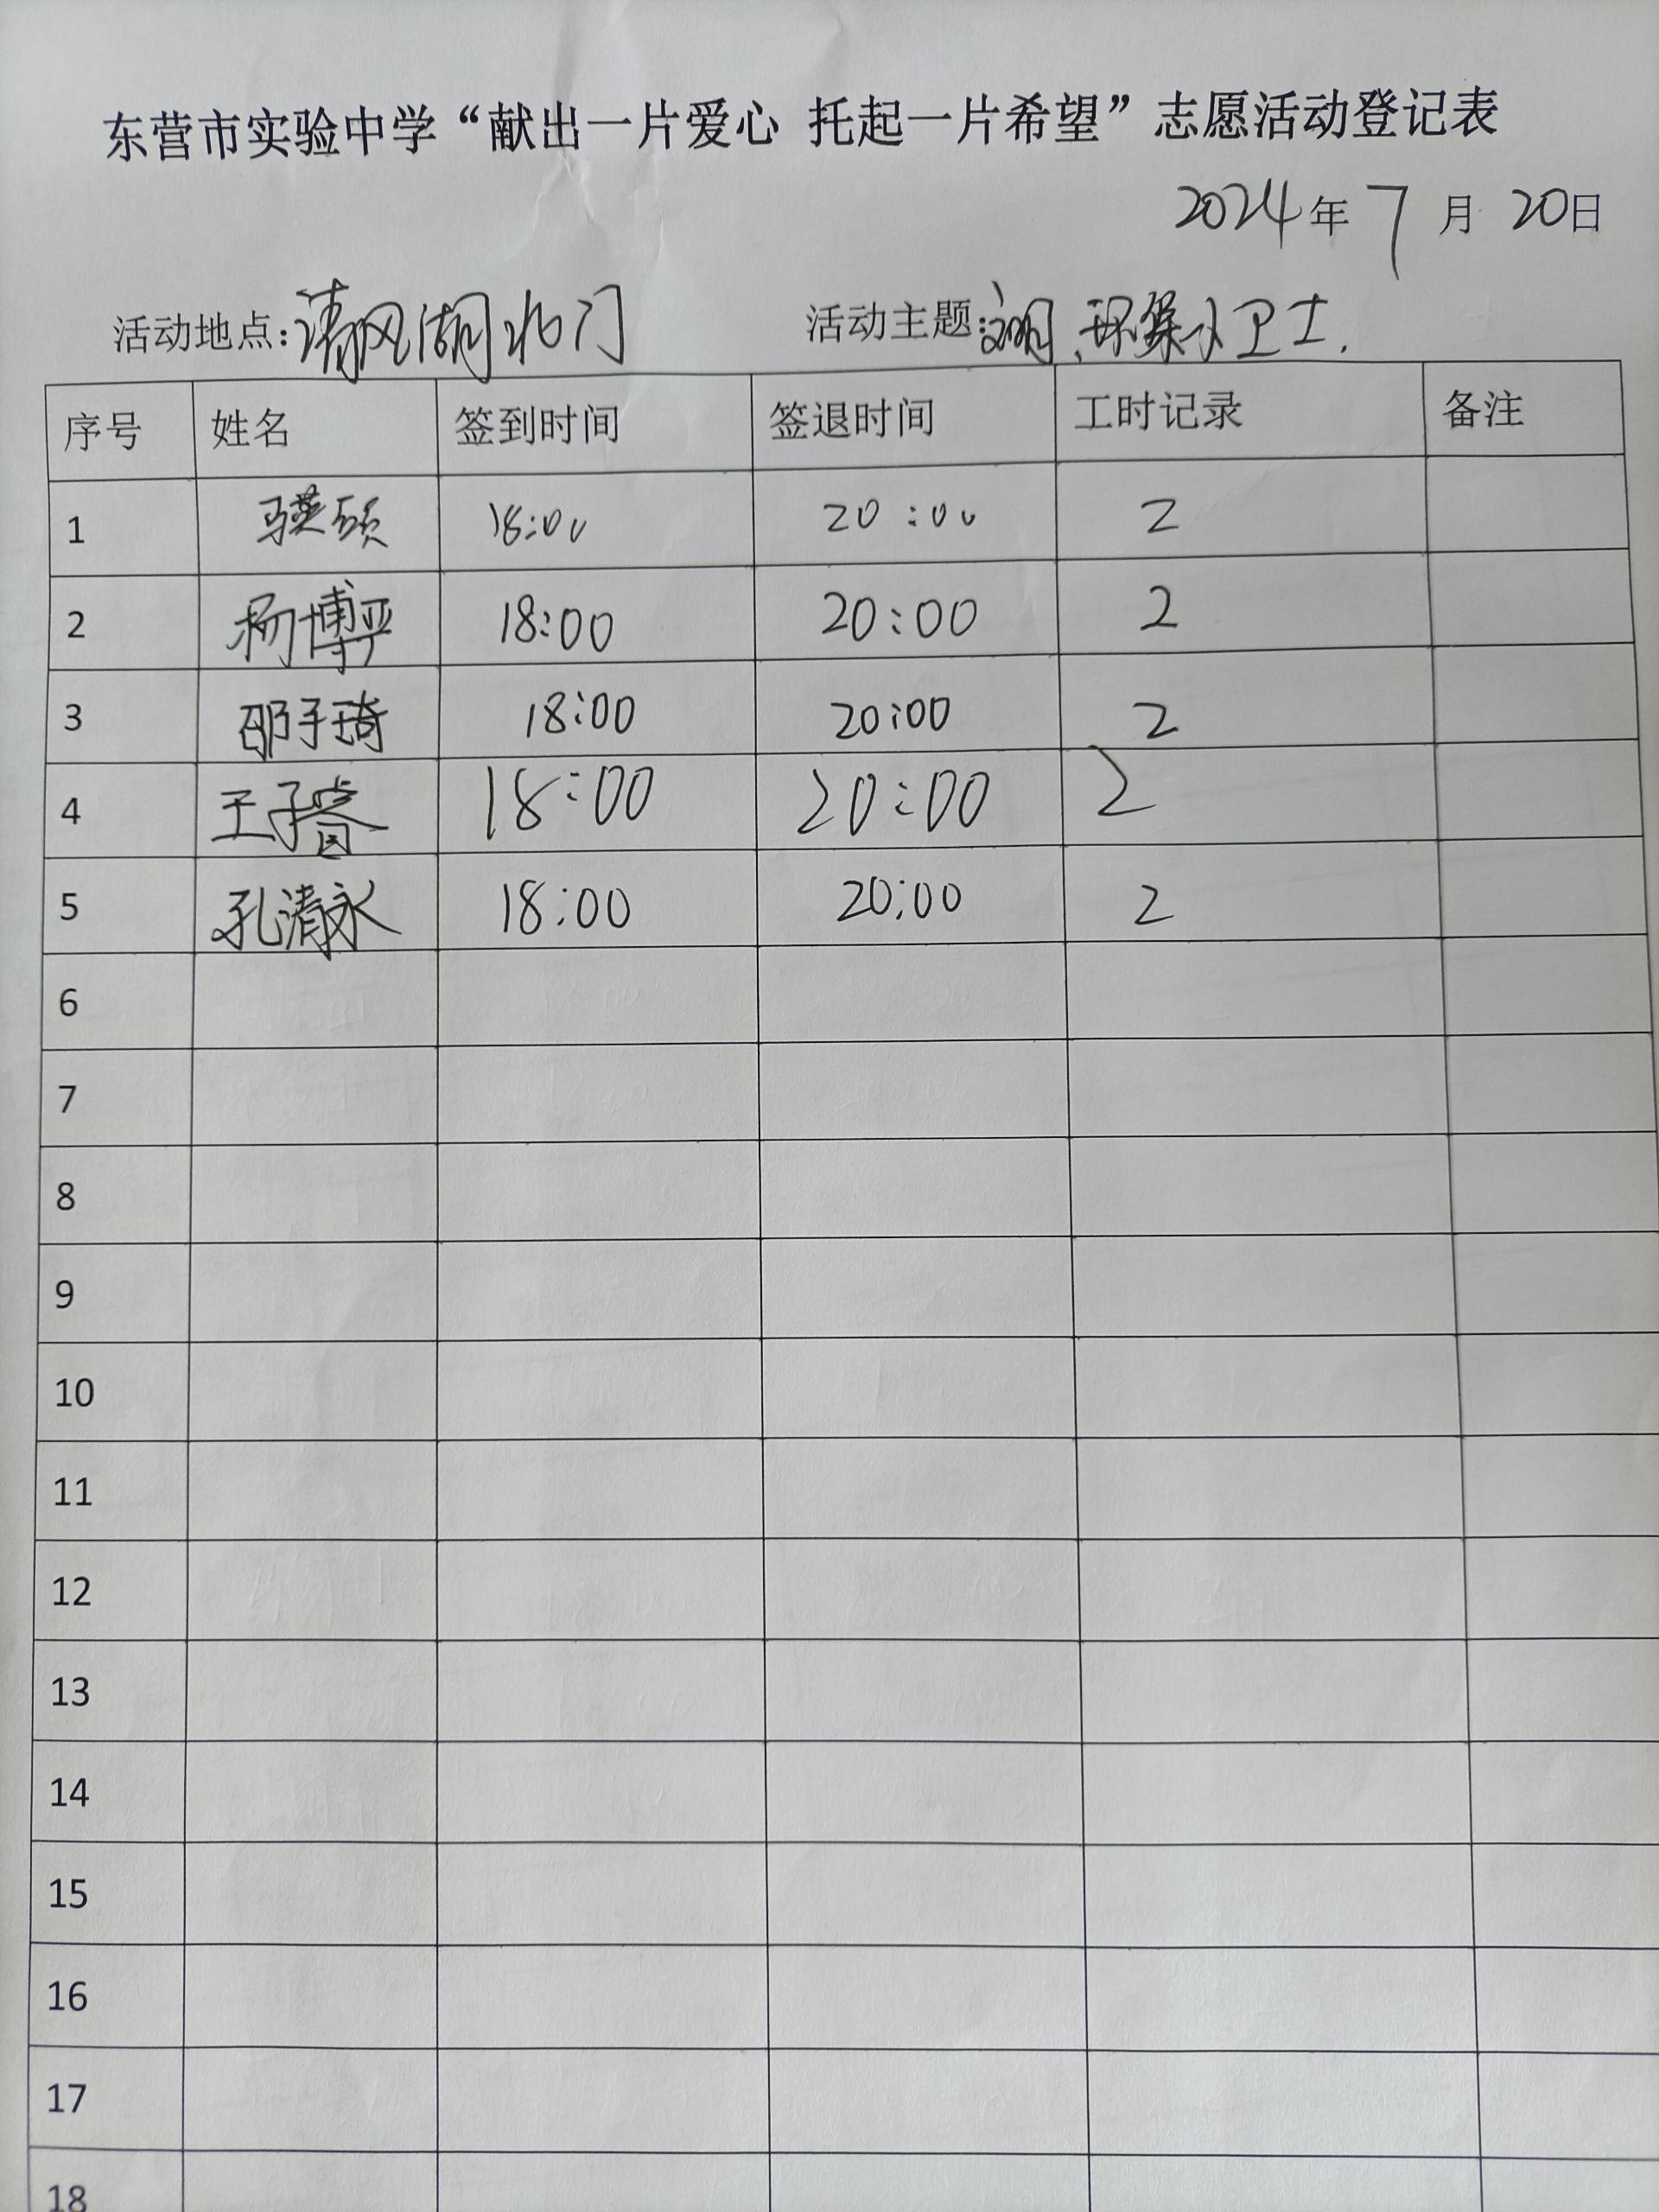 东营市实验中学“献出一片爱心 托起一片希望”志愿活动登记表
2024年 7 月 20日
活动地点:清风湖北门 活动主题:文明、环保小卫士.
序号 姓名 签到时间 签退时间 工时记录 备注
1 马英硕 18:00 20:00 2
2 杨博严 18:00 20:00 2
3 邵子琦 18:00 20:00 2
4 王子睿 18:00 20:00 2
5 孔清永 18:00 20:00 2
6
7
8
9
10
11
12
13
14
15
16
17
18